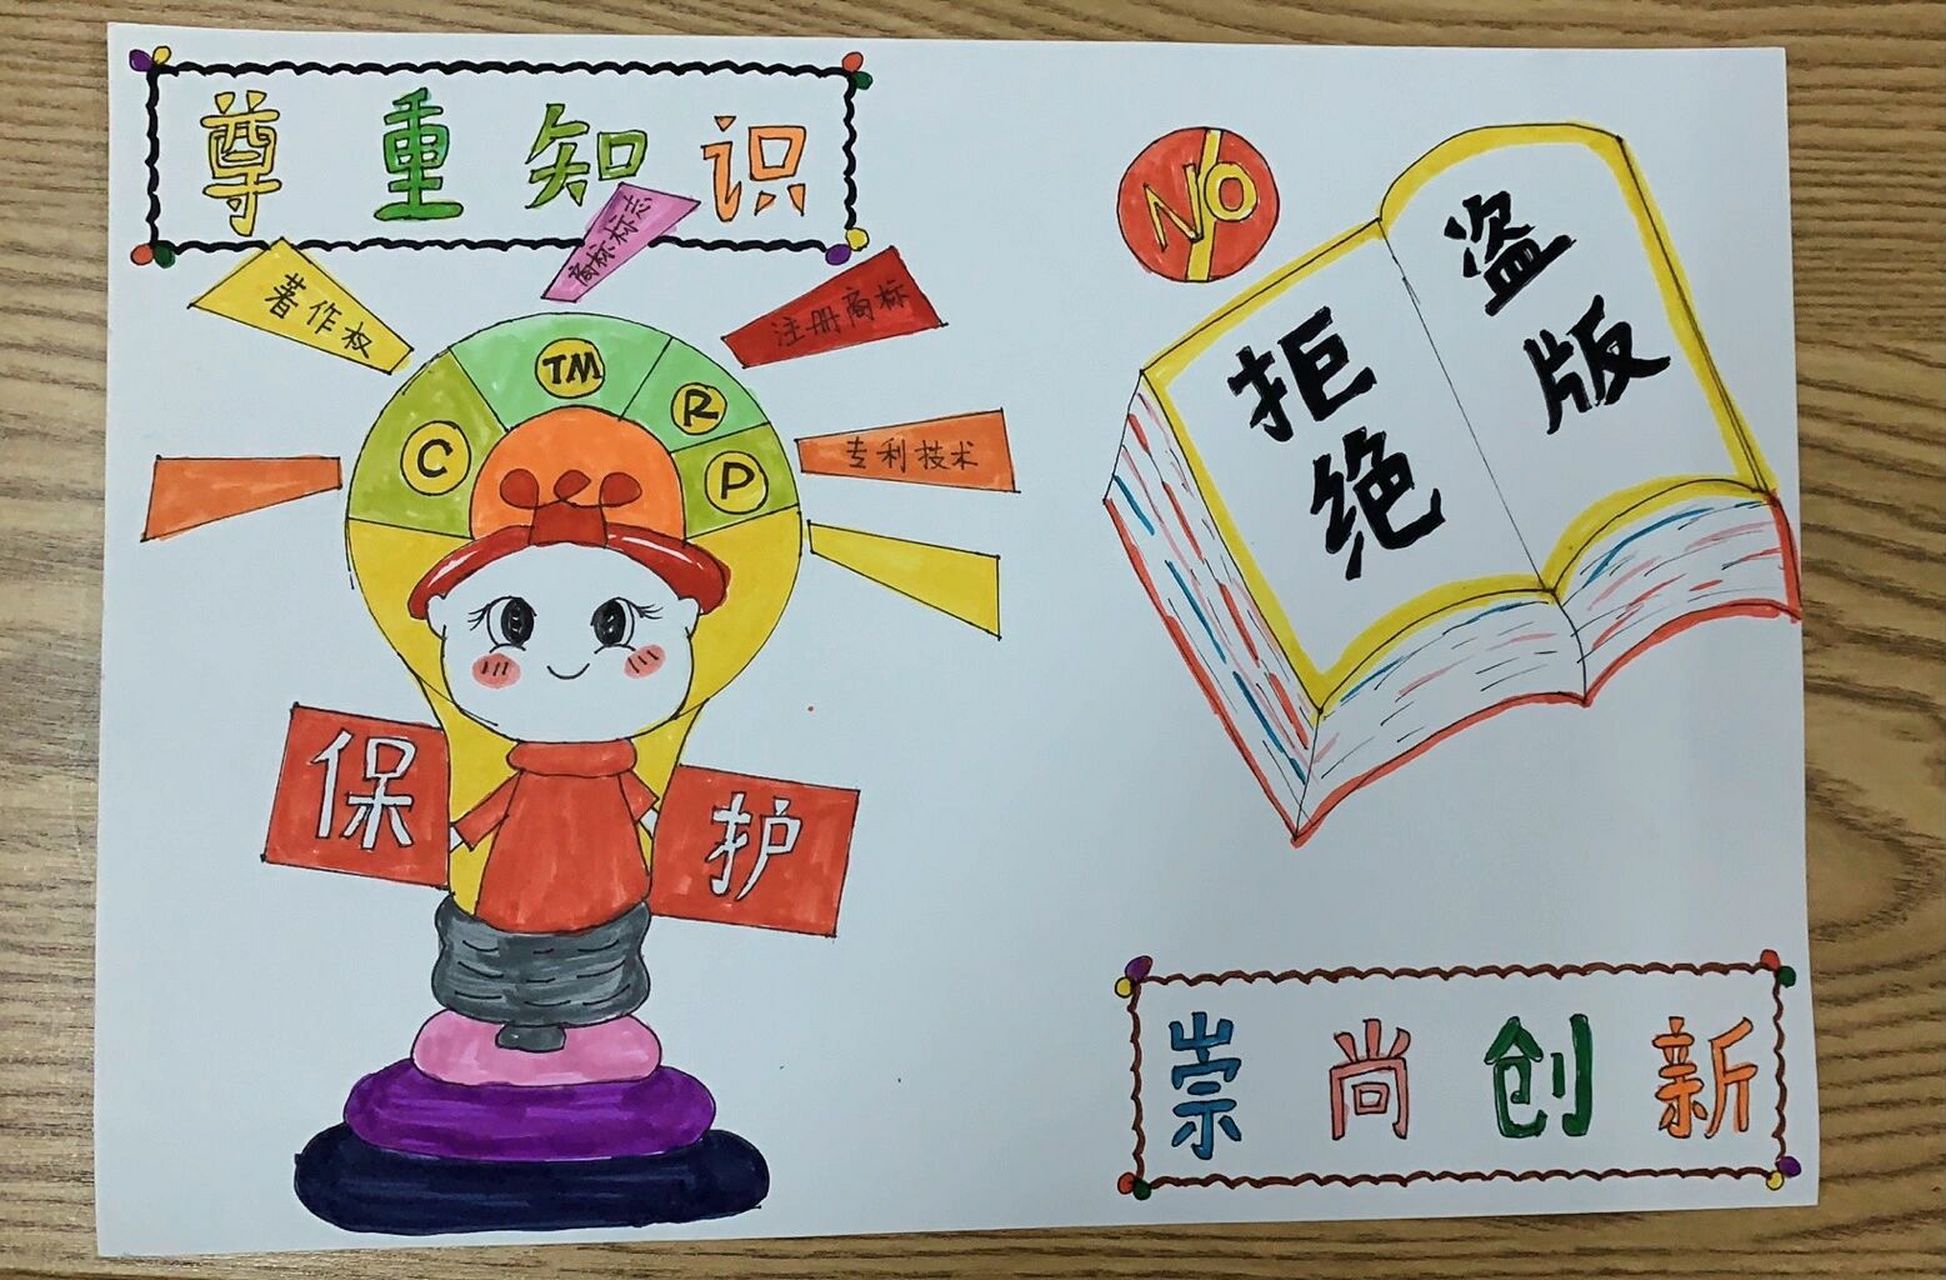 尊重知识
著作权
商标标志
注册商标
专利技术
C
TM
R
P
保护
NO
拒绝
盗版
崇尚创新